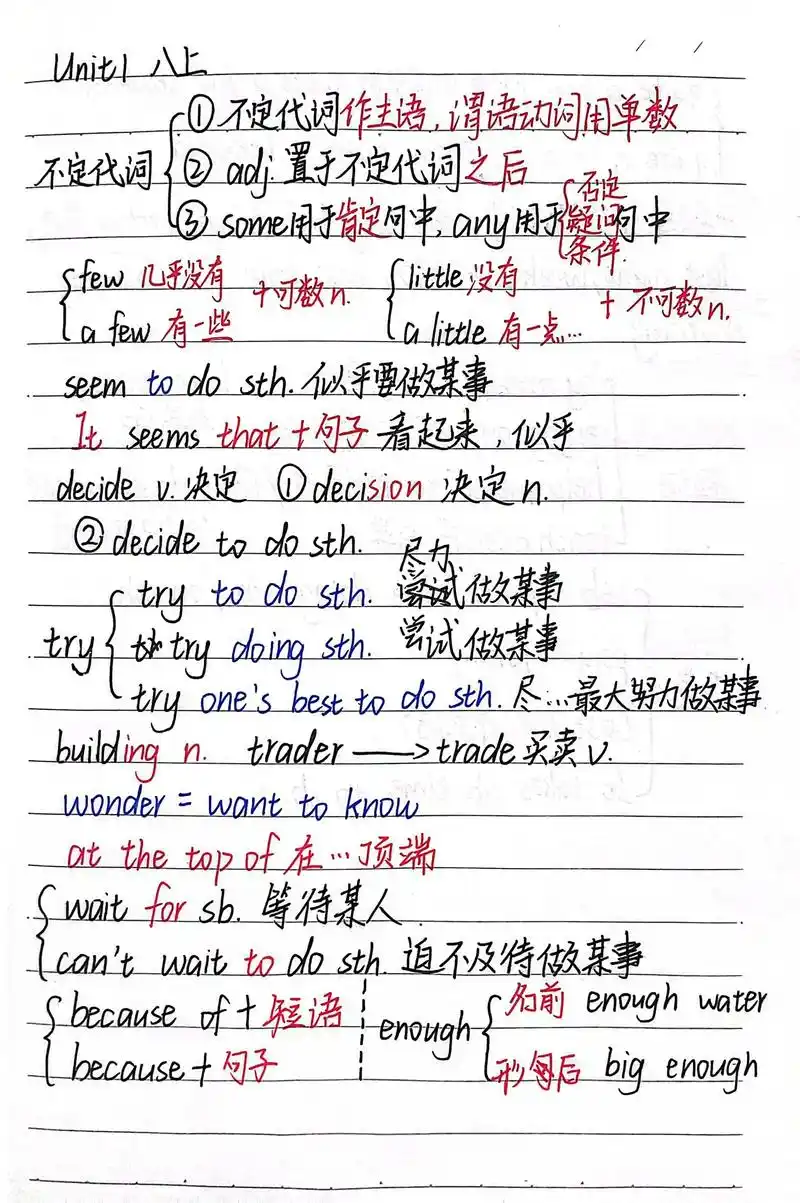 Unit1 八上
不定代词
① 不定代词作主语,谓语动词用单数
② adj. 置于不定代词之后
③ some用于肯定句中, any用于 否定 疑问 条件 句中
few 几乎没有 +可数n.
a few 有一些
little 没有 + 不可数n.
a little 有一点...
seem to do sth. 似乎要做某事
It seems that + 句子 看起来, 似乎
decide v. 决定 ① decision 决定 n.
② decide to do sth.
try
try to do sth. 尽力做某事
try doing sth. 尝试做某事
try one's best to do sth. 尽...最大努力做某事
building n. trader → trade 买卖 v.
wonder = want to know
at the top of 在...顶端
wait for sb. 等待某人
can't wait to do sth. 迫不及待做某事
because of + 短语
because + 句子
enough
名前 enough water
形后 big enough